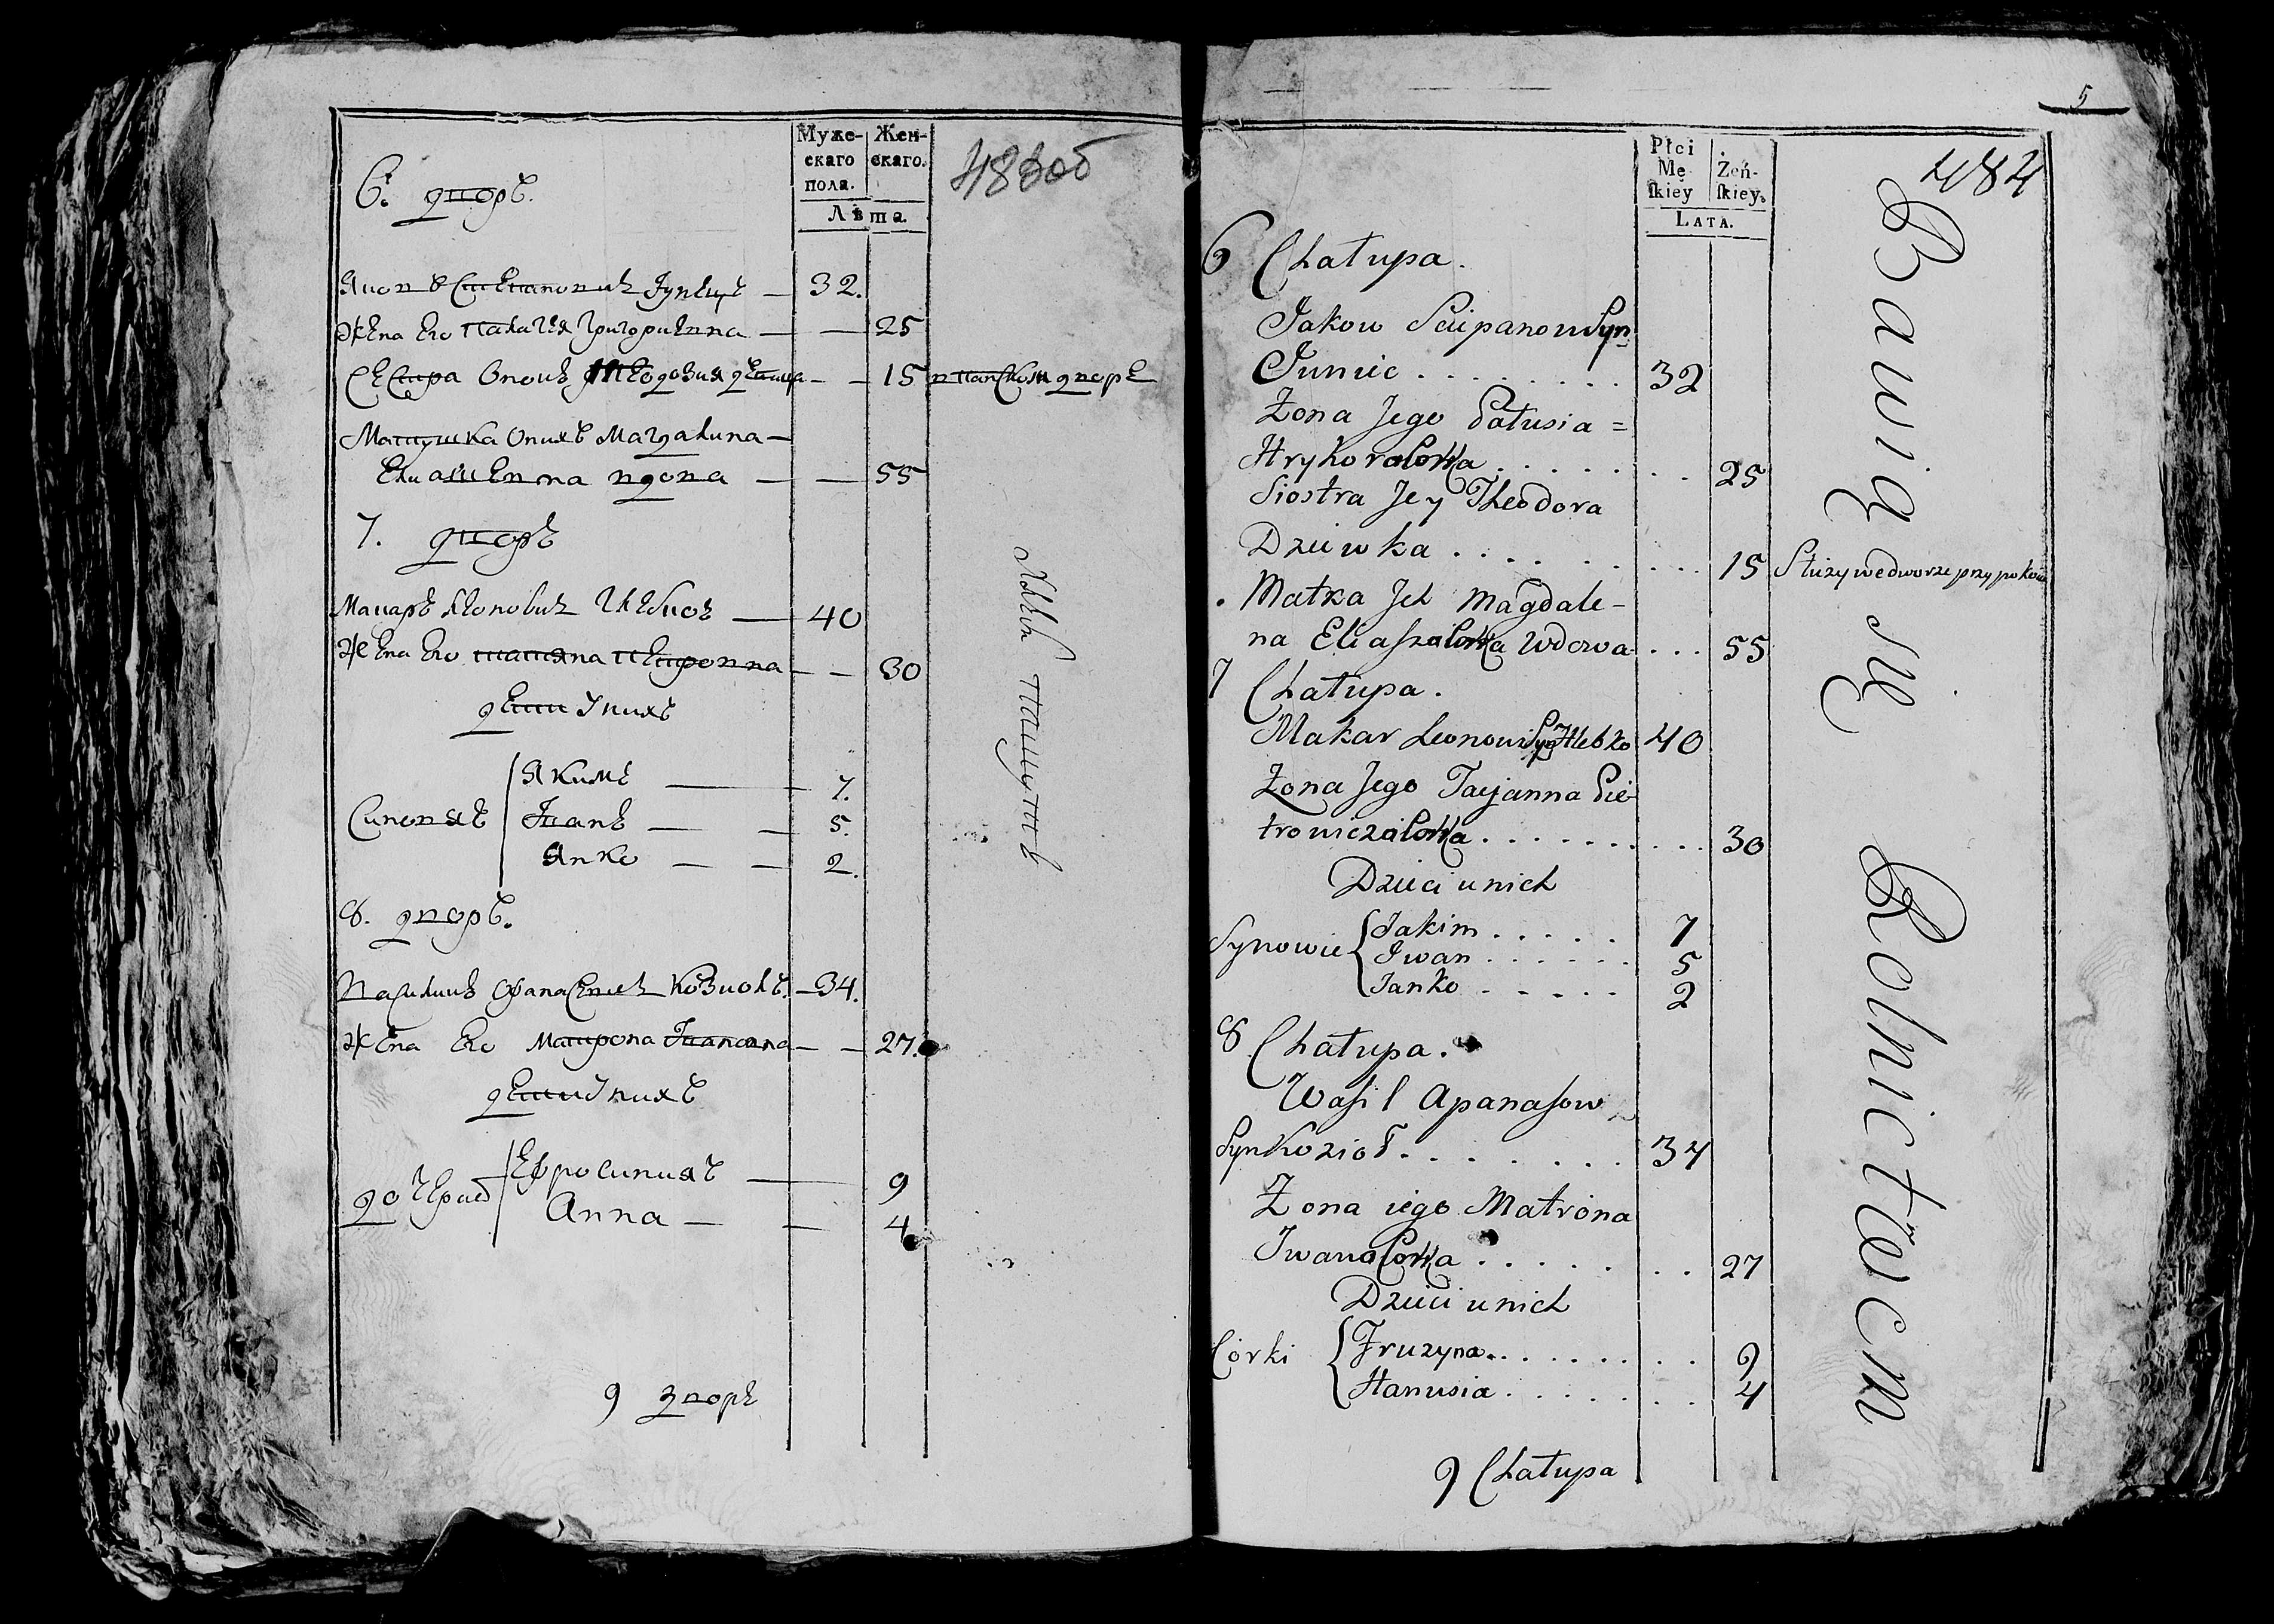 Муже-
скаго
пола.
Жен-
скаго.
Лѣта.
483об
6. дворъ.
Яковъ Степановичъ Гунецъ — 32.
Жена Его Палагея Григориевна — — 25
Сестра Оновъ Теодозия девица — — 15 в панском дворе
Матушка Онихъ Магдалина —
Елиашевна вдова — — 55
7. дворъ
Макаръ Леоновичъ Глебко — 40
Жена Его Татяна Петровна — — 30
дети Униxъ
Синовяъ
Якимъ — 7.
Иванъ — — 5.
Янко — — 2.
8. дворъ.
Василий Офанасевичъ Козиолъ. — 34.
Жена Его Матрона Ивановна — — 27.
дети Унихъ
дочери
Ефросинияъ — 9
Анна — — 4
9 дворъ
5
484
Płci
Mę
skiey
Żeń-
skiey.
LATA.
6 Chałupa.
Jakow Sciepanow Syn
Juniec . . . . . . . . 32
Żona Jego Pałusia =
Hrykora Corka . . . . . . . . 25
Siostra Jey Theodora
Dziewka . . . . . . . . . 15 Służy we dworze przy pokoiu
Matka Ich Magdale-
na Eliasza Corka Wdowa . . . 55
7 Chałupa.
Makar Leonow Syn Hlebko 40
Żona Jego Tacjanna Pie-
trowicza Corka . . . . . . . . . . 30
Dzieci u nich
Synowie
Jakim . . . . . 7
Iwan . . . . . . 5
Janko . . . . . 2
8 Chałupa.
Wasil Apanasow
Syn Kozioł . . . . . . . 34
Żona iego Matrona
Iwana Corka . . . . . . . 27
Dzieci u nich
Corki
Fruzyna . . . . . . . . . 9
Hanusia . . . . . . . . 4
9 Chałupa
Bawią się Rolnictwem